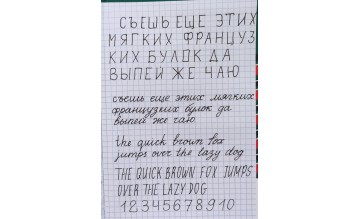 СЪЕШЬ ЕЩЕ ЭТИХ
МЯГКИХ ФРАНЦУЗ
КИХ БУЛОК ДА
ВЫПЕЙ ЖЕ ЧАЮ
съешь еще этих мягких
французких булок да
выпей же чаю
the quick brown fox
jumps over the lazy dog
THE QUICK BROWN FOX JUMPS
OVER THE LAZY DOG
12345678910